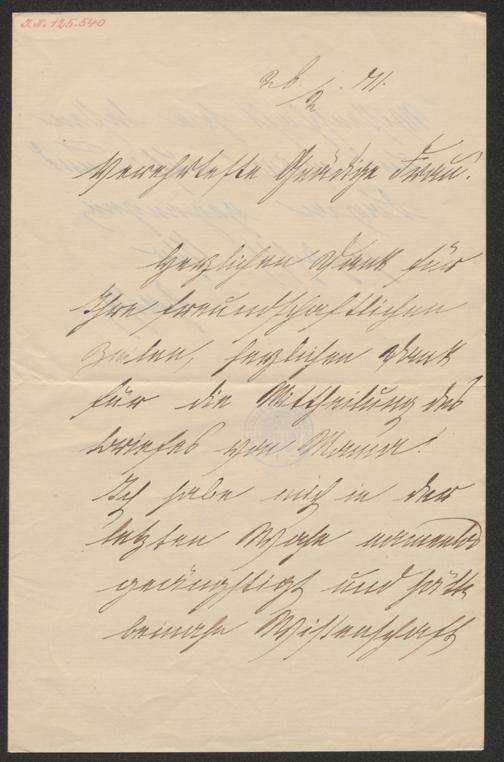 I.N. 125.540
26/2. 71.
Verehrteste Gnädige Frau!
Herzlichen Dank für
Ihre freundschaftlichen
Zeilen, herzlichen Dank
für die Mittheilung des
Briefes von Mama!
Ich habe mich in der
letzten Woche namenlos
geängstigt und hätte
beinahe Wissenschaft